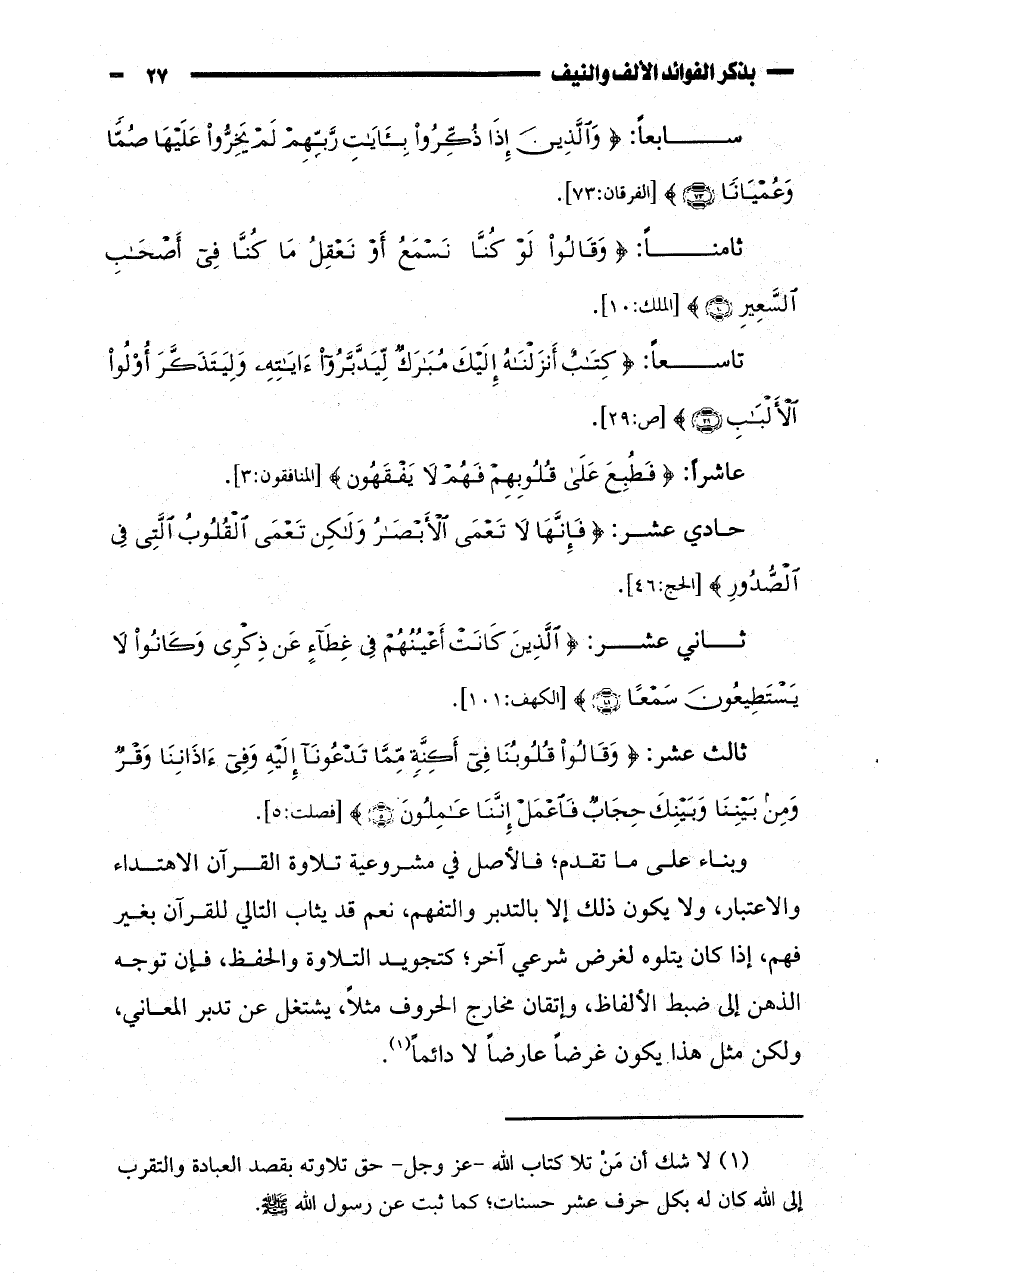 بذكر الفوائد الألف والنيف ٢٧
سابعاً: ﴿ وَٱلَّذِينَ إِذَا ذُكِّرُوا۟ بِـَٔايَـٰتِ رَبِّهِمْ لَمْ يَخِرُّوا۟ عَلَيْهَا صُمًّا
وَعُمْيَانًا ٧٣ ﴾ [الفرقان:٧٣].
ثامناً: ﴿ وَقَالُوا۟ لَوْ كُنَّا نَسْمَعُ أَوْ نَعْقِلُ مَا كُنَّا فِىٓ أَصْحَـٰبِ
ٱلسَّعِيرِ ١٠ ﴾ [الملك:١٠].
تاسعاً: ﴿ كِتَـٰبٌ أَنزَلْنَـٰهُ إِلَيْكَ مُبَـٰرَكٌ لِّيَدَّبَّرُوٓا۟ ءَايَـٰتِهِۦ وَلِيَتَذَكَّرَ أُو۟لُوا۟
ٱلْأَلْبَـٰبِ ٢٩ ﴾ [ص:٢٩].
عاشراً: ﴿ فَطُبِعَ عَلَىٰ قُلُوبِهِمْ فَهُمْ لَا يَفْقَهُونَ ﴾ [المنافقون:٣].
حادي عشر: ﴿ فَإِنَّهَا لَا تَعْمَى ٱلْأَبْصَـٰرُ وَلَـٰكِن تَعْمَى ٱلْقُلُوبُ ٱلَّتِى فِى
ٱلصُّدُورِ ﴾ [الحج:٤٦].
ثاني عشر: ﴿ ٱلَّذِينَ كَانَتْ أَعْيُنُهُمْ فِى غِطَآءٍ عَن ذِكْرِى وَكَانُوا۟ لَا
يَسْتَطِيعُونَ سَمْعًا ١٠١ ﴾ [الكهف:١٠١].
ثالث عشر: ﴿ وَقَالُوا۟ قُلُوبُنَا فِىٓ أَكِنَّةٍ مِّمَّا تَدْعُونَآ إِلَيْهِ وَفِىٓ ءَاذَانِنَا وَقْرٌ
وَمِنۢ بَيْنِنَا وَبَيْنِكَ حِجَابٌ فَٱعْمَلْ إِنَّنَا عَـٰمِلُونَ ٥ ﴾ [فصلت:٥].
وبناء على ما تقدم؛ فالأصل في مشروعية تلاوة القرآن الاهتداء
والاعتبار، ولا يكون ذلك إلا بالتدبر والتفهم، نعم قد يثاب التالي للقرآن بغير
فهم، إذا كان يتلوه لغرض شرعي آخر؛ كتجويد التلاوة والحفظ، فإن توجه
الذهن إلى ضبط الألفاظ، وإتقان مخارج الحروف مثلاً، يشتغل عن تدبر المعاني،
ولكن مثل هذا يكون غرضاً عارضاً لا دائماً(١).
(١) لا شك أن مَنْ تلا كتاب الله -عز وجل- حق تلاوته بقصد العبادة والتقرب
إلى الله كان له بكل حرف عشر حسنات؛ كما ثبت عن رسول الله ﷺ.